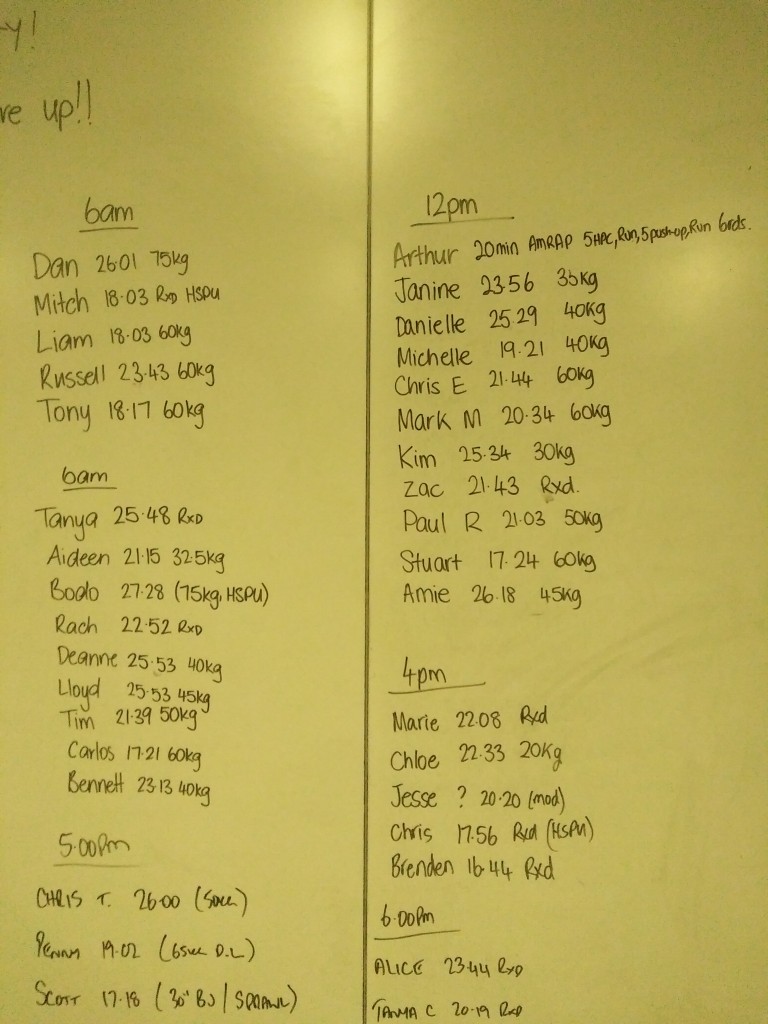 y!
re up!!
6am
Dan 26.01 75kg
Mitch 18.03 RXD HSPU
Liam 18.03 60kg
Russell 23.43 60kg
Tony 18.17 60kg
6am
Tanya 25.48 RXD
Aideen 21.15 32.5kg
Bodo 27.28 (75kg, HSPU)
Rach 22.52 RXD
Deanne 25.53 40kg
Lloyd 25.53 45kg
Tim 21.39 50kg
Carlos 17.21 60kg
Bennett 23.13 40kg
5.00pm
CHRIS T. 26.00
PENNY 19.02 D.L)
SCOTT 17.18 (30" BJ / SPRAWL)
12pm
Arthur 20min AMRAP 5HPC, Run, 5push-up, Run 6rds.
Janine 23.56 35kg
Danielle 25.29 40kg
Michelle 19.21 40kg
Chris E 21.44 60kg
Mark M 20.34 60kg
Kim 25.34 30kg
Zac 21.43 Rxd.
Paul R 21.03 50kg
Stuart 17.24 60kg
Amie 26.18 45kg
4pm
Marie 22.08 Rxd
Chloe 22.33 20kg
Jesse ? 20.20 (mod)
Chris 17.56 Rxd (HSPU)
Brenden 16.44 Rxd
6.00pm
ALICE 23.44 RXD
TANYA C 20.19 RXD